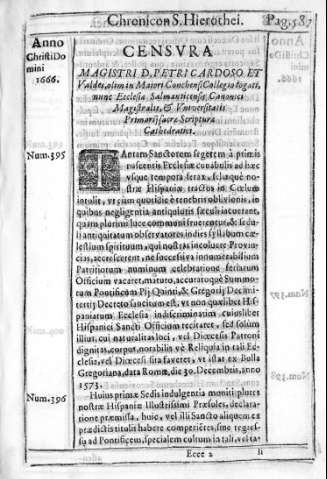 Chronicon S. Hierothei. Pag. 587
Anno
Christi Do
mini
1666.
CENSVRA
MAGISTRI D. PETRI CARDOSO ET
Valdes, olim in Maiori Conchensi Collegio togati,
nunc Ecclesiæ Salmanticensis Canonici
Magistralis, & Vniversitatis
Primarij sacræ Scripturæ
Cathedratici.
Num. 395
TAntam Sanctorum segetem à primis
nascentis Ecclesiæ cunabulis ad hæc
vsque tempora ferax, fœlixque no
stræ Hispaniæ tractus in Cœlum
intulit, vt cùm quotidie è tenebris oblivionis, in
quibus negligentia antiquioris sæculi iacuerant,
quàm plurimi luce communi fruerentur, & sedu
li antiquitatum observatores indies syllabum cœ
lestium spirituum, qui nostras incoluere Provin
cias, accrescerent, ne successiva innumerabilium
Partitiorum numinum celebratione feriarum
Officium vacaret, maturo, accuratoque Summo
rum Pontificum Pij Quinti, & Gregorij Decimi
tertij Decreto sancitum est, vt non quælibet His
paniarum Ecclesia indiscriminatim cuiuslibet
Hispanici Sancti Officium recitaret, sed solùm
illius, cui naturalitas loci, vel Diœcesis Patroni
dignitas, corpus, notabilis vè Reliquia in tali Ec
clesia, vel Diœcesi sita faveret, vt istat ex Bulla
Gregoriana, data Romæ, die 30. Decembris, anno
1573.
Num. 396
Huius primæ Sedis indulgentia moniti plures
nostræ Hispaniæ Illustrissimi Præsules, declara
tione præmissa, huic, vel illi Sancto aliquem ex
prædictis titulis habere competêre, sine regres
su ad Pontificem, specialem cultum in tali, vel ta-
Eeee 2
li